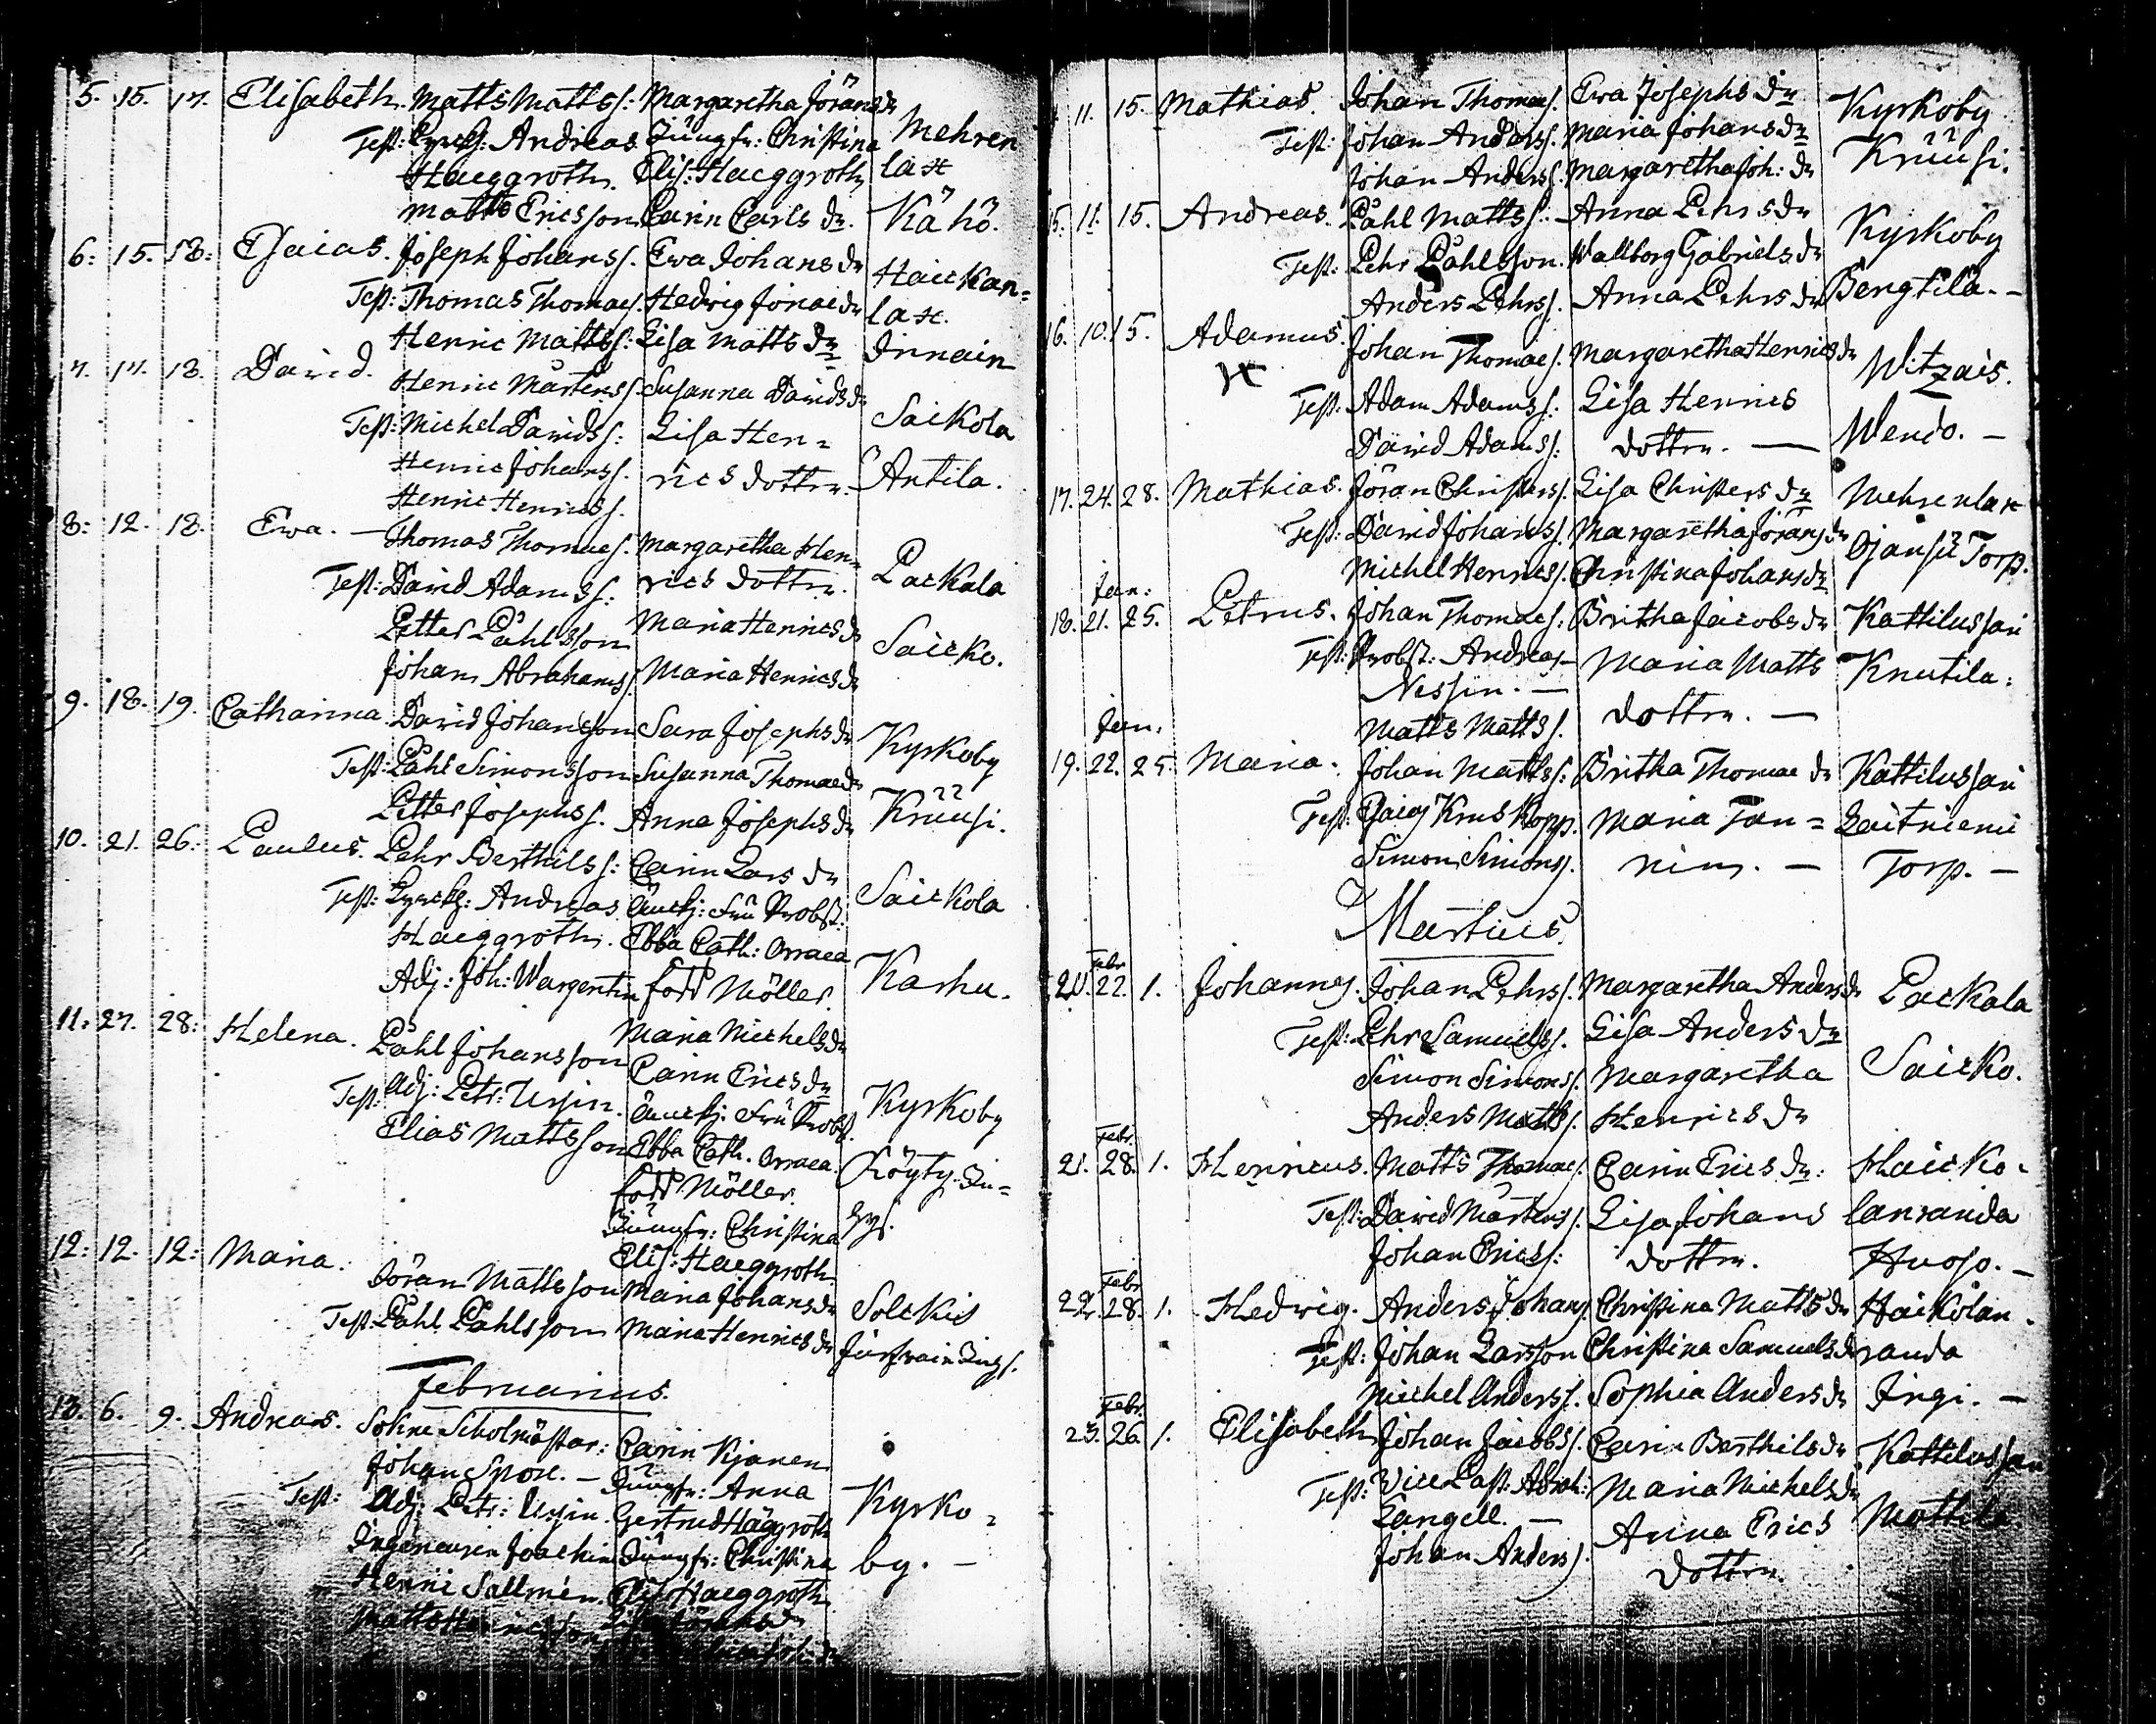 5. 15. 17. Elisabeth. Matts Matts s: Margaretha Jörans dr Mehren
Test: Andreas Jungfr: Christina lax
Haeggroth. Elis: Haeggroth
Matts Ericsson Carin Carls dr. Kähö.
6: 15. 18: Esaias. Joseph Johans s. Ewa Johans dr Haickan=
Test: Thomas Thomae s. Hedwig Jonae dr lax.
Henric Matts s: Lisa Matts dr Innain
7. 17. 18. David. Henric Mårtens s. Susanna Davids dr
Test: Michel Davids s: Lisa Hen= Saikola
Henric Johans s. rics dotter. Antila.
Henric Henrics s.
8: 12. 18. Ewa. — Thomas Thomae s. Margaretha Hen=
Test: David Adams s: rics dotter. Packala
Petter Påhlsson Maria Henrics dr
Johan Abrahams s. Maria Henrics dr Saicko.
9. 18. 19. Catharina. David Johansson Sara Josephs dr Kyrkoby
Test: Påhl Simonsson Susanna Thomae dr
Petter Josephs s. Anna Josephs dr Krüüsi.
10. 21. 26: Paulus. Pehr Berthils s: Carin Lars dr
Test: Andreas Fru Probst. Saickola
Haeggroth. Ebba Cath: Orraea
Adj: Joh: Wargentin född Möller Karhu.
11: 27. 28: Helena. Påhl Johansson Maria Michels dr
Carin Erics dr
Test: Adj: Petr: Ursin. Fru Probst. Kyrkoby
Elias Mattsson Ebba Cath. Orraea. Köyty In=
född Möller. hys.
Jungfr: Christina
Elis: Haeggroth
12: 12. 12: Maria. Jöran Mattsson Maria Johans dr Solckis
Test. Påhl Påhlsson Maria Henrics dr
Februarius.
13. 6. 9. Andreas. Sokne Scholmästar: Carin Kjanen
Johan Spore. — Jungfr: Anna
Test: Adj: Petr: Ursin. Gertrud Häggroth Kyrko=
Joachim Jungfr: Christina by. —
Henric Sallmén. Elis: Haeggroth
Matts Henricsson
11. 15. Mathias. Johan Thomae s. Ewa Josephs dr Kyrkoby
Test: Johan Anders s. Maria Johans dr
Johan Anders s. Margaretha Joh: dr Krüüsi.
15. 11. 15. Andreas. Påhl Matts s. Anna Pehrs dr Kyrkoby
Test: Pehr Påhlsson. Wallborg Gabriels dr
Anders Pehrs s. Anna Pehrs dr Bengtila. —
16. 10. 15. Adamus. Johan Thomae s. Margaretha Henrics dr Witzais.
Test: Adam Adams s: Lisa Henrics
David Adams s: dotter. — Wendo. —
17. 24. 28. Mathias. Jöran Christers s. Lisa Christers dr Mehrenlax
Test: David Johans s. Margaretha Jörans dr Ojansü Torp.
Michel Henrics s. Christina Johans dr
Jan:
18. 21. 25. Petrus. Johan Thomae s: Britha Jacobs dr Kattilusjari
Test: Probst: Andreas Maria Matts Knutila.
Nessin. — dotter. —
Matts Matts s.
Jan.
19. 22. 25. Maria. Johan Matts s: Britha Thomae dr Kattilusjari
Test: Esaias Kruskopp. Maria Tan= Laitniemi
Simon Simons s. nin. — Torp. —
Martius.
Febr.
20. 22. 1. Johannes. Johan Pehrs s. Margaretha Anders dr Packala
Test: Pehr Samuels s. Lisa Anders dr
Simon Simons s. Margaretha Saicko.
Anders Matts s. Henrics dr
Febr.
21. 28. 1. Henricus. Matts Thomae s. Carin Erics dr: Haicko=
Test: David Mårtens s. Lisa Johans lanranda
Johan Erics s: dotter. Huoso. —
Febr
22. 28. 1. Hedwig. Anders Johans s. Christina Matts dr Haikolan
Test: Johan Larsson Christina Samuels dr randa
Michel Anders s. Sophia Anders dr Jingi. —
Febr.
23. 26. 1. Elisabeth Johan Jacobs s. Carin Berthils dr Kattilusjari
Test: Vice Past: Abrah: Maria Michels dr
Langell. — Anna Erics Mattila
Johan Anders s. dotter.